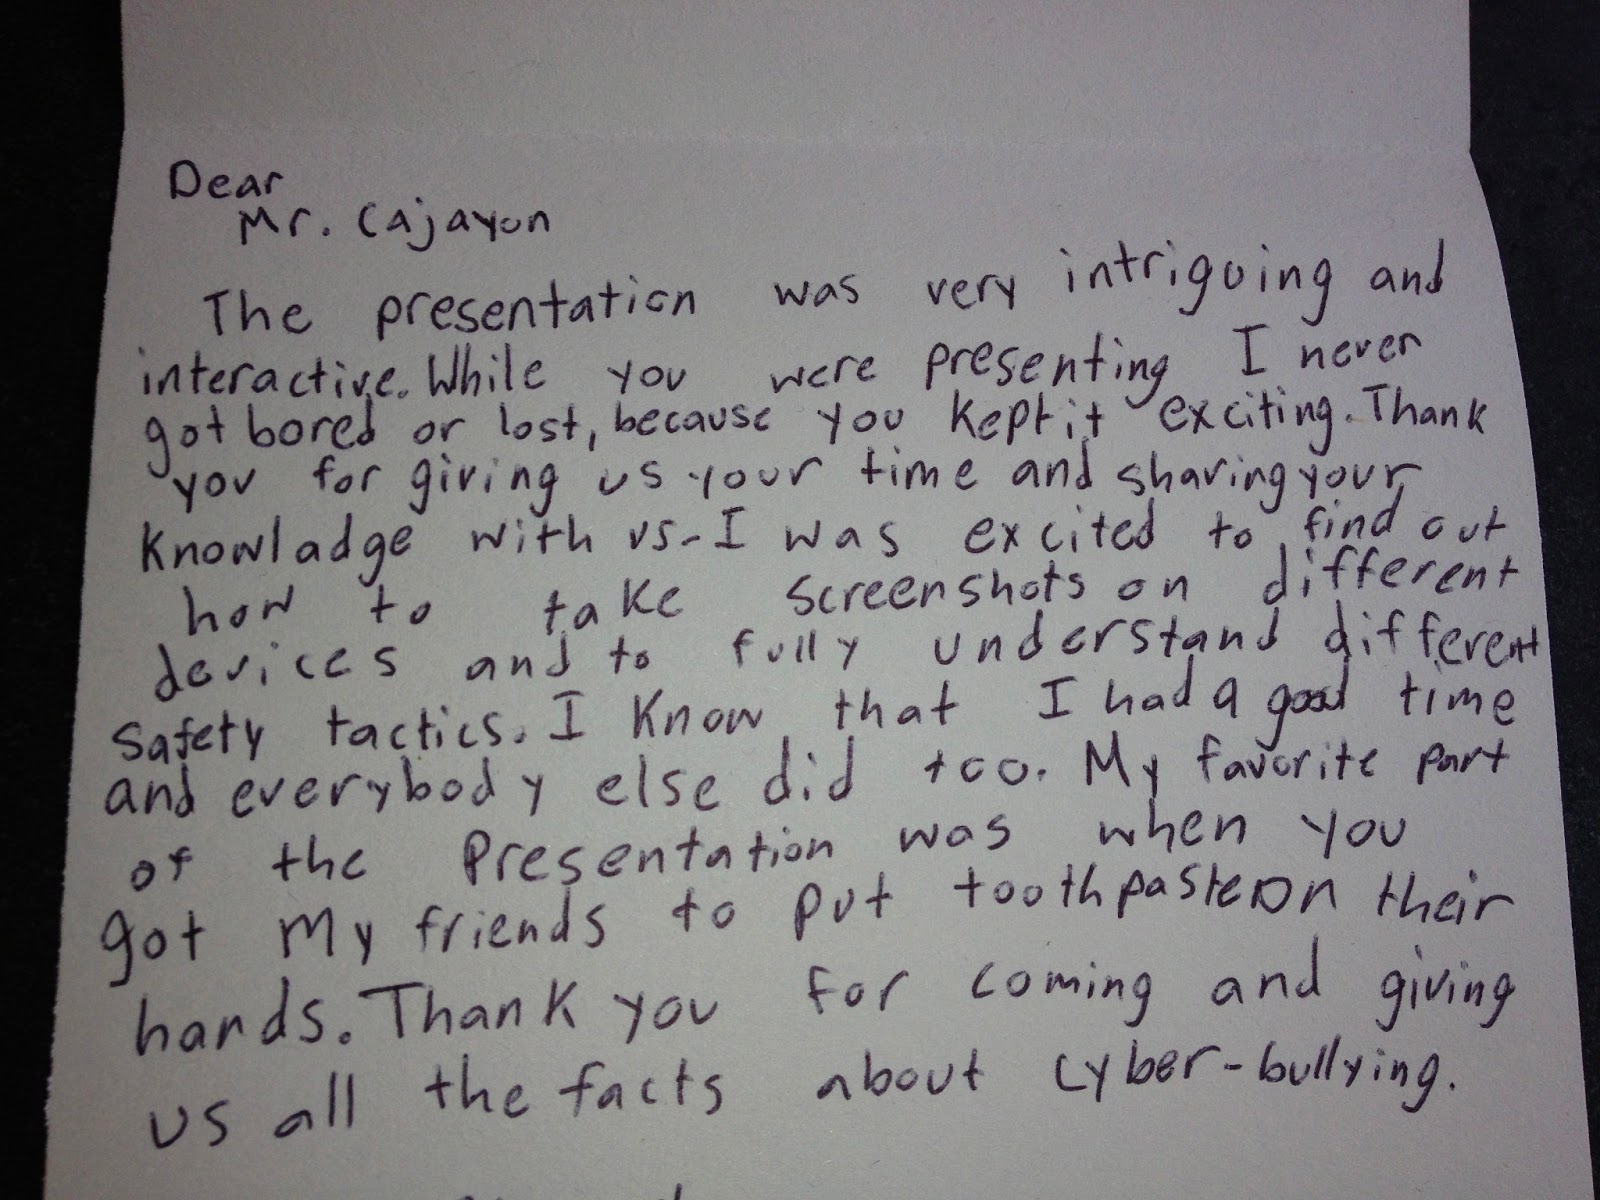 Dear
Mr. Cajayon
The presentation was very intriguing and
interactive. While you were presenting I never
got bored or lost, because you kept it exciting. Thank
you for giving us your time and sharing your
knowladge with us. I was excited to find out
how to take screenshots on different
devices and to fully understand different
safety tactics. I know that I had a good time
and everybody else did too. My favorite part
of the presentation was when you
got my friends to put toothpaste on their
hands. Thank you for coming and giving
us all the facts about cyber-bullying.